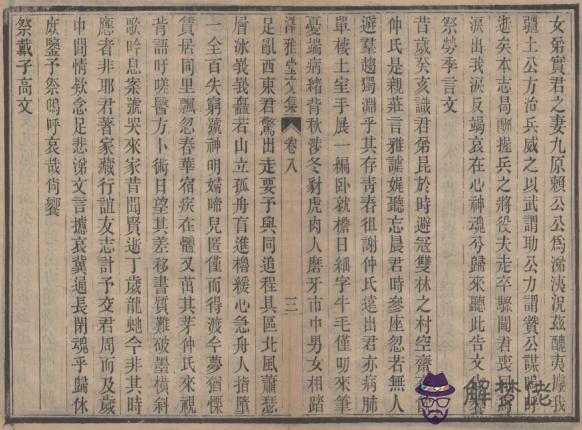 女弟實君之妻九原賴公公為涕洟況茲醜夷
疆土公方治兵威之以武謂助公力謂贊公謀嗚呼
逝矣本志曷酬握兵之將役夫走卒驟聞君喪
淚出我淚反竭哀在心神魂兮歸來聽此告文
祭勞季言文
昔歲癸亥識君弟昆於時避寇雙林之村空齋
仲氏是親莊言雅謔娓聽忘晨君時參座忽若無人
避羣趨獨淵乎其存青春徂謝仲氏遠出君亦病肺
單棲土室手展一編臥就檐日細字牛毛僅叨來筆
憂端病緒背秋涉冬豺虎肉人磨牙市中男女相踏
足亂西東君驚出走要予與同追程具區北風蕭瑟
澤雅堂文集 卷八 三
層冰峩峩矗若山立孤舟首進櫓緩心急舟人指墮
一全百失窮號神明嬬啼兒匿僅而得渡今夢猶慄
賃居同里飄忽春華宿疾在體又茁其芽仲氏來視
背語吁嗟醫方卜術日望其差移書質難破墨橫斜
歌吟息案號哭來家昔聞賢逝丁歲龍虵今非其時
應者非耶君著家藏行誼友志計予交君周而及歲
中閒情款念足悲涕文言攄哀冀逼長閉魂乎歸休
庶鑒予祭嗚呼哀哉尚饗
祭戴子高文
解梦佬